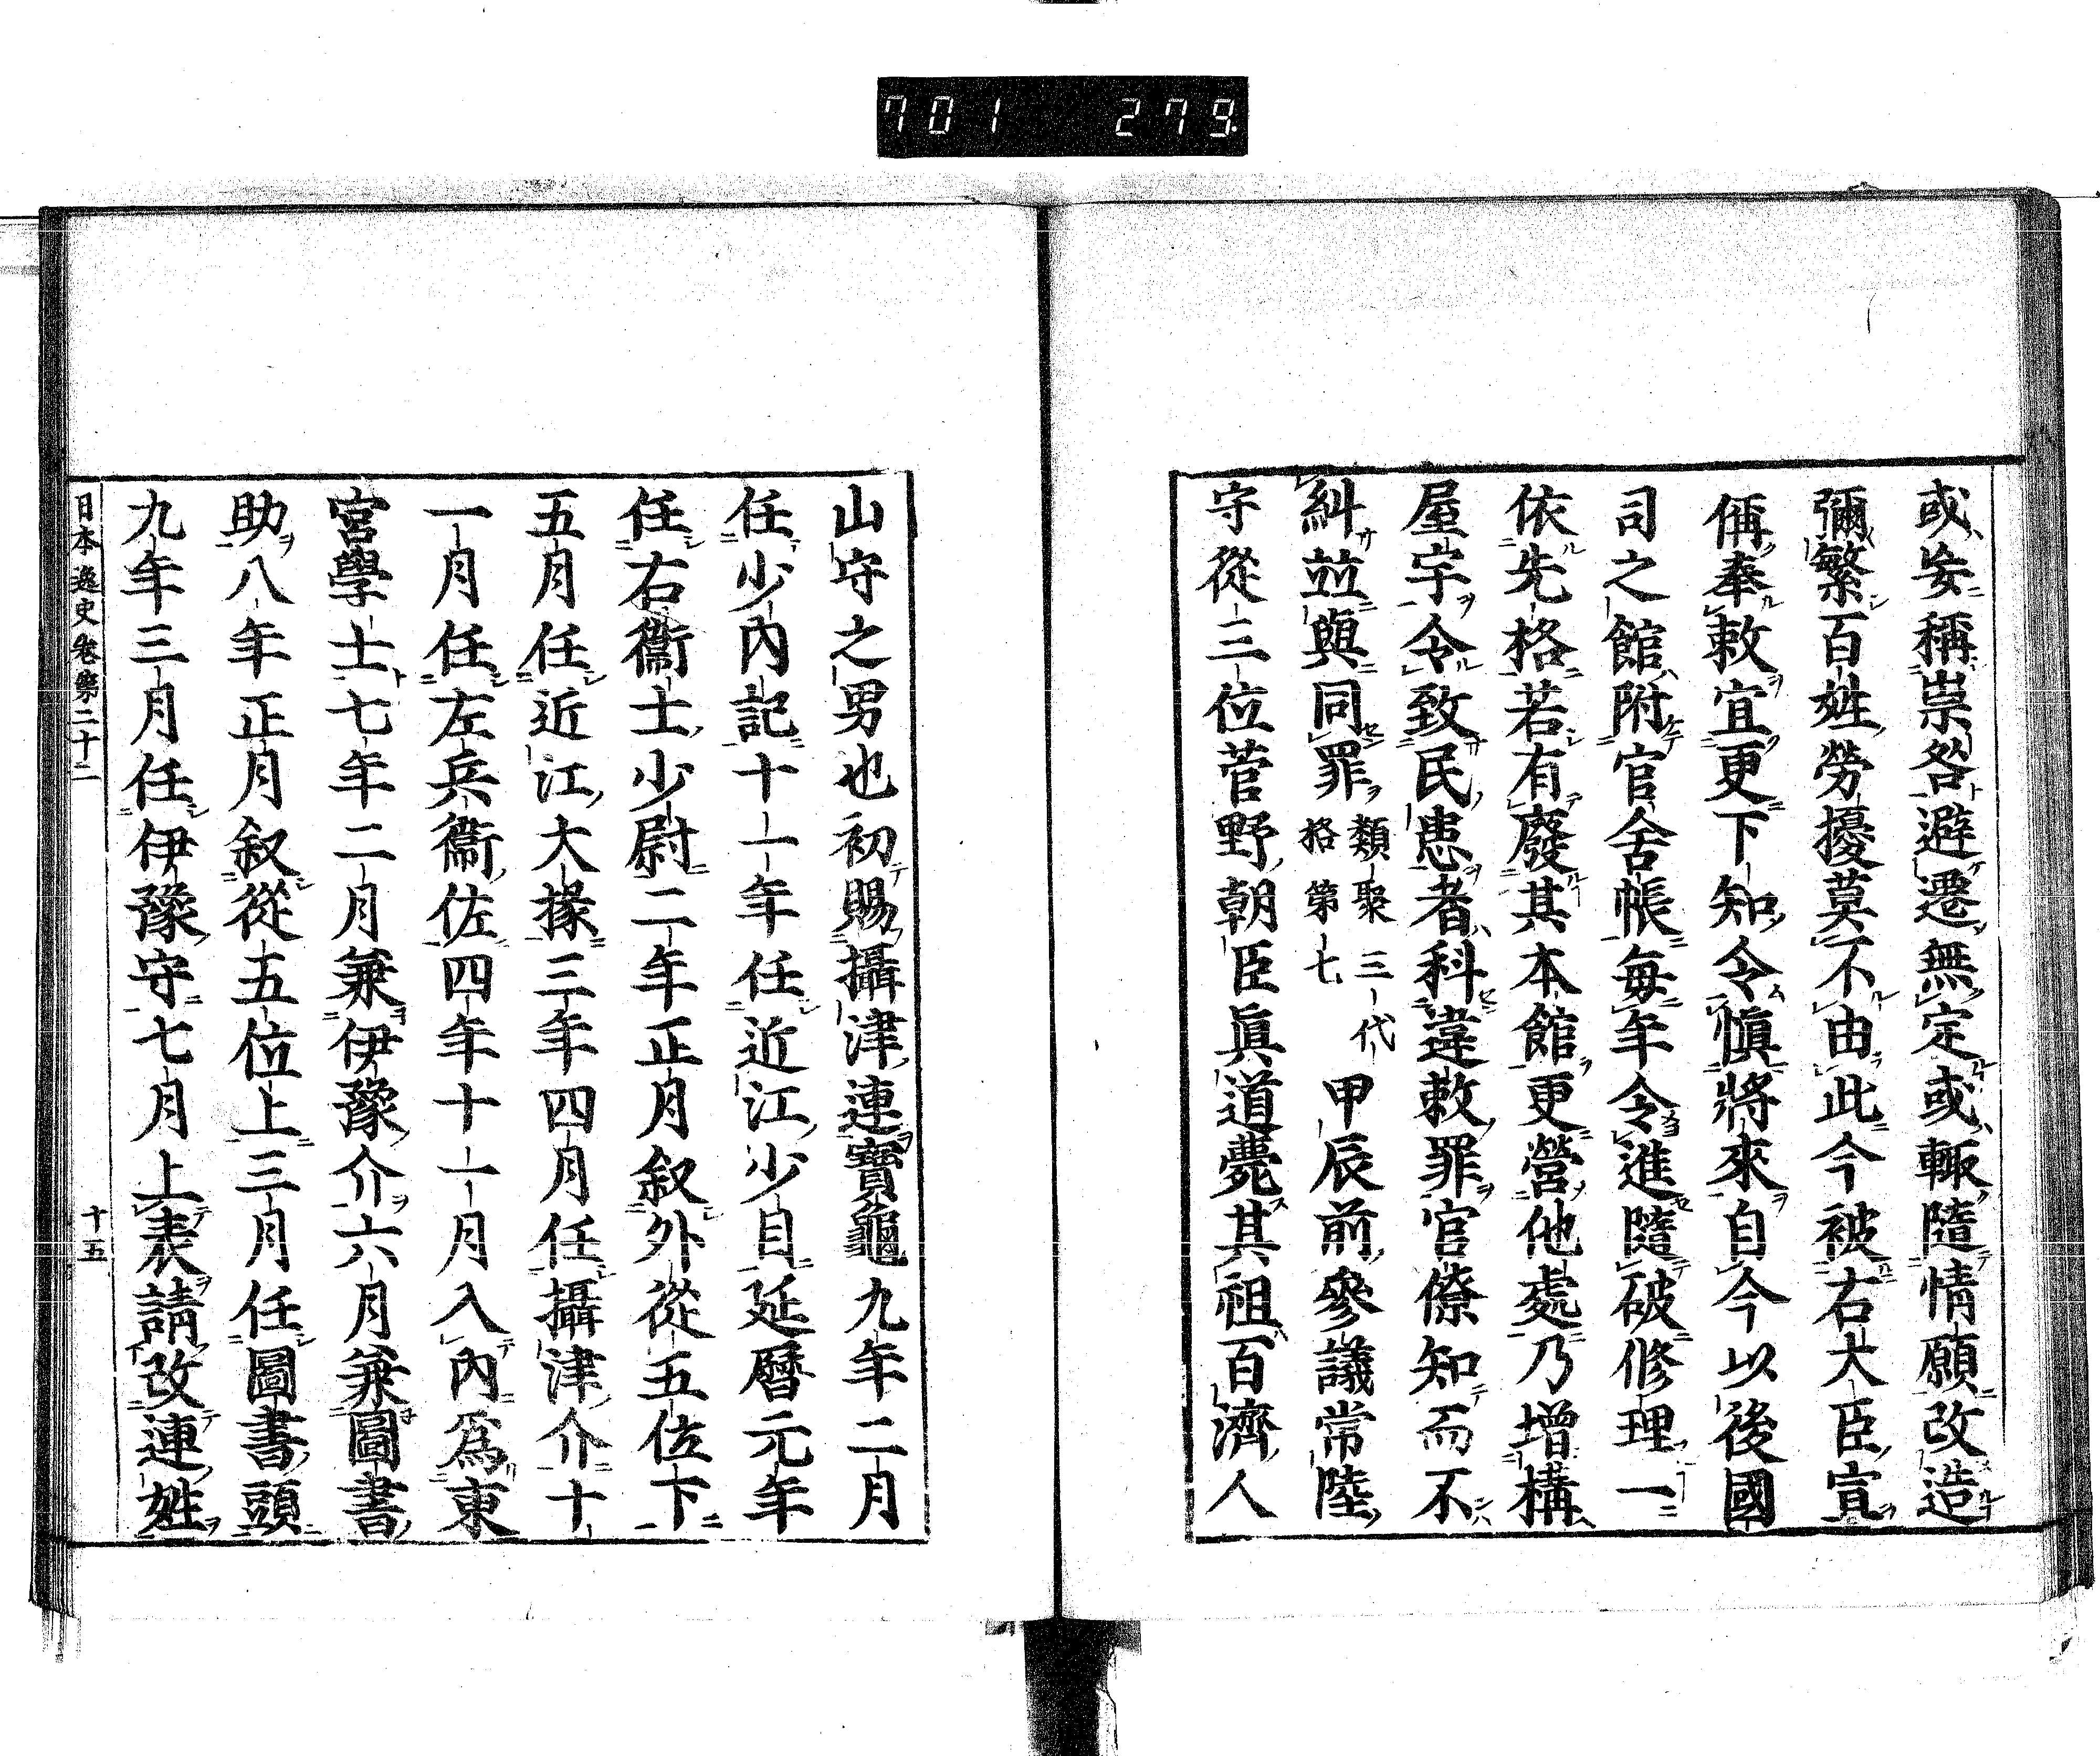 701 279
或妄稱崇咎避遷無定或輙隨情願改造
彌繁百姓勞擾莫不由此今被右大臣宣
偁奉敕宜更下知令愼將來自今以後國
司之館附官舍帳每年令進隨破修理一
依先格若有廢其本館更營他處乃增構
屋宇令致民患者科違敕罪官僚知而不
糾並與同罪類聚三代格第七 甲辰前參議常陸
守從三位菅野朝臣眞道薨其祖百濟人
山守之男也初賜攝津連寶龜九年二月
任少內記十一年任近江少目延曆元年
任右衞士少尉二年正月叙外從五位下
五月任近江大掾三年四月任攝津介十
一月任左兵衞佐四年十一月入內爲東
宮學士七年二月兼伊豫介六月兼圖書
助八年正月叙從五位上三月任圖書頭
九年三月任伊豫守七月上表請改連姓
日本逸史卷第二十二 十五